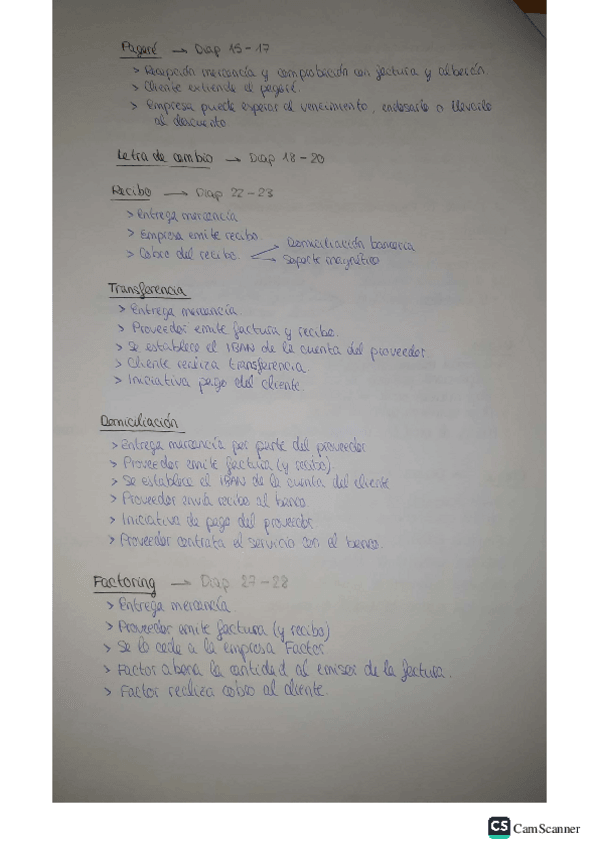 Pagaré → Diap 15-17
> Recepción mercancía y comprobación con factura y albarán.
> Cliente extiende el pagaré.
> Empresa puede esperar al vencimiento, endosarlo o llevarlo
al descuento
Letra de cambio → Diap 18-20
Recibo → Diap 22-23
> Entrega mercancía
> Empresa emite recibo.
> Cobro del recibo.
Domiciliación bancaria
Soporte magnético
Transferencia
> Entrega mercancía.
> Proveedor emite factura y recibo.
> Se establece el IBAN de la cuenta del proveedor
> Cliente realiza transferencia.
> Iniciativa pago del cliente.
Domiciliación
> Entrega mercancía por parte del proveedor
> Proveedor emite factura (y recibo)
> Se establece el IBAN de la cuenta del cliente
> Proveedor envía recibo al banco.
> Iniciativa de pago del proveedor
> Proveedor contrata el servicio con el banco.
Factoring → Diap 27-28
> Entrega mercancía
> Proveedor emite factura (y recibo)
> Se lo cede a la empresa Factor.
> Factor abona la cantidad al emisor de la factura.
> Factor realiza cobro al cliente.
CS CamScanner